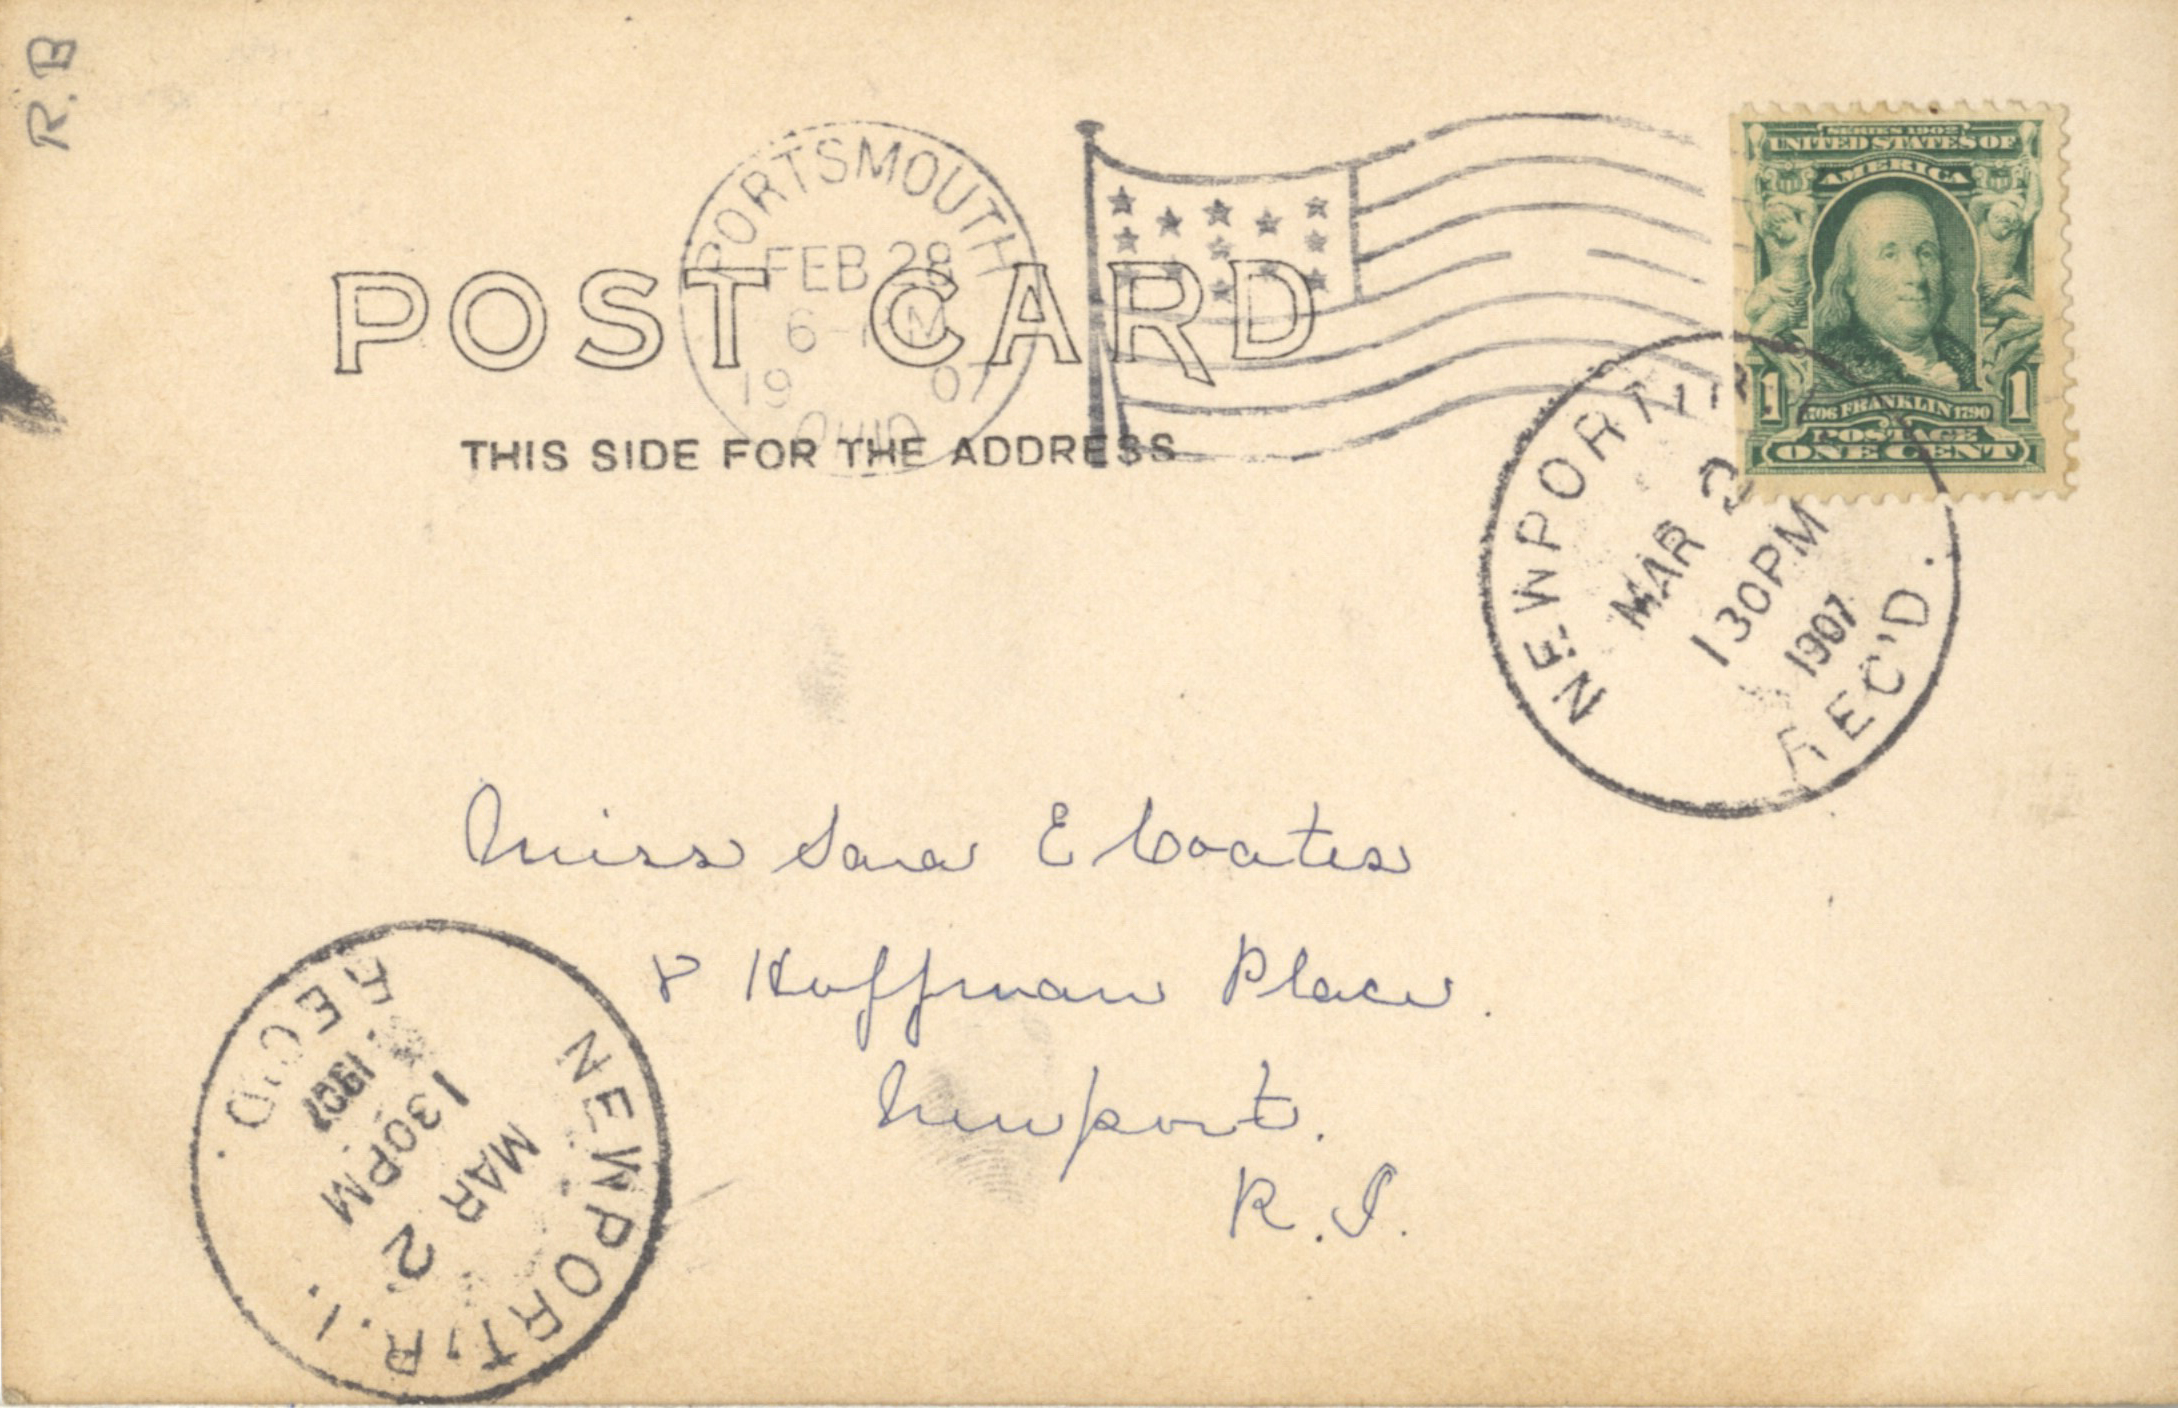 R.B
PORTSMOUTH
FEB 28
6-PM
19 07
OHIO
POST CARD
THIS SIDE FOR THE ADDRESS
SERIES 1902
UNITED STATES OF
AMERICA
1 1706 FRANKLIN 1790 1
POSTAGE
ONE CENT
NEWPORT, R.I.
MAR 2
130PM
1907
REC'D.
Miss Sara E Coates
8 Hoffman Place.
Newport.
R.I.
NEWPORT, R.I.
MAR 2
130PM
1907
REC'D.